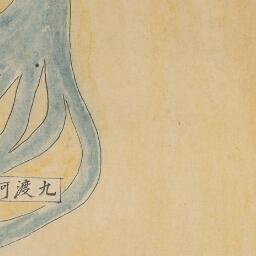 九渡河